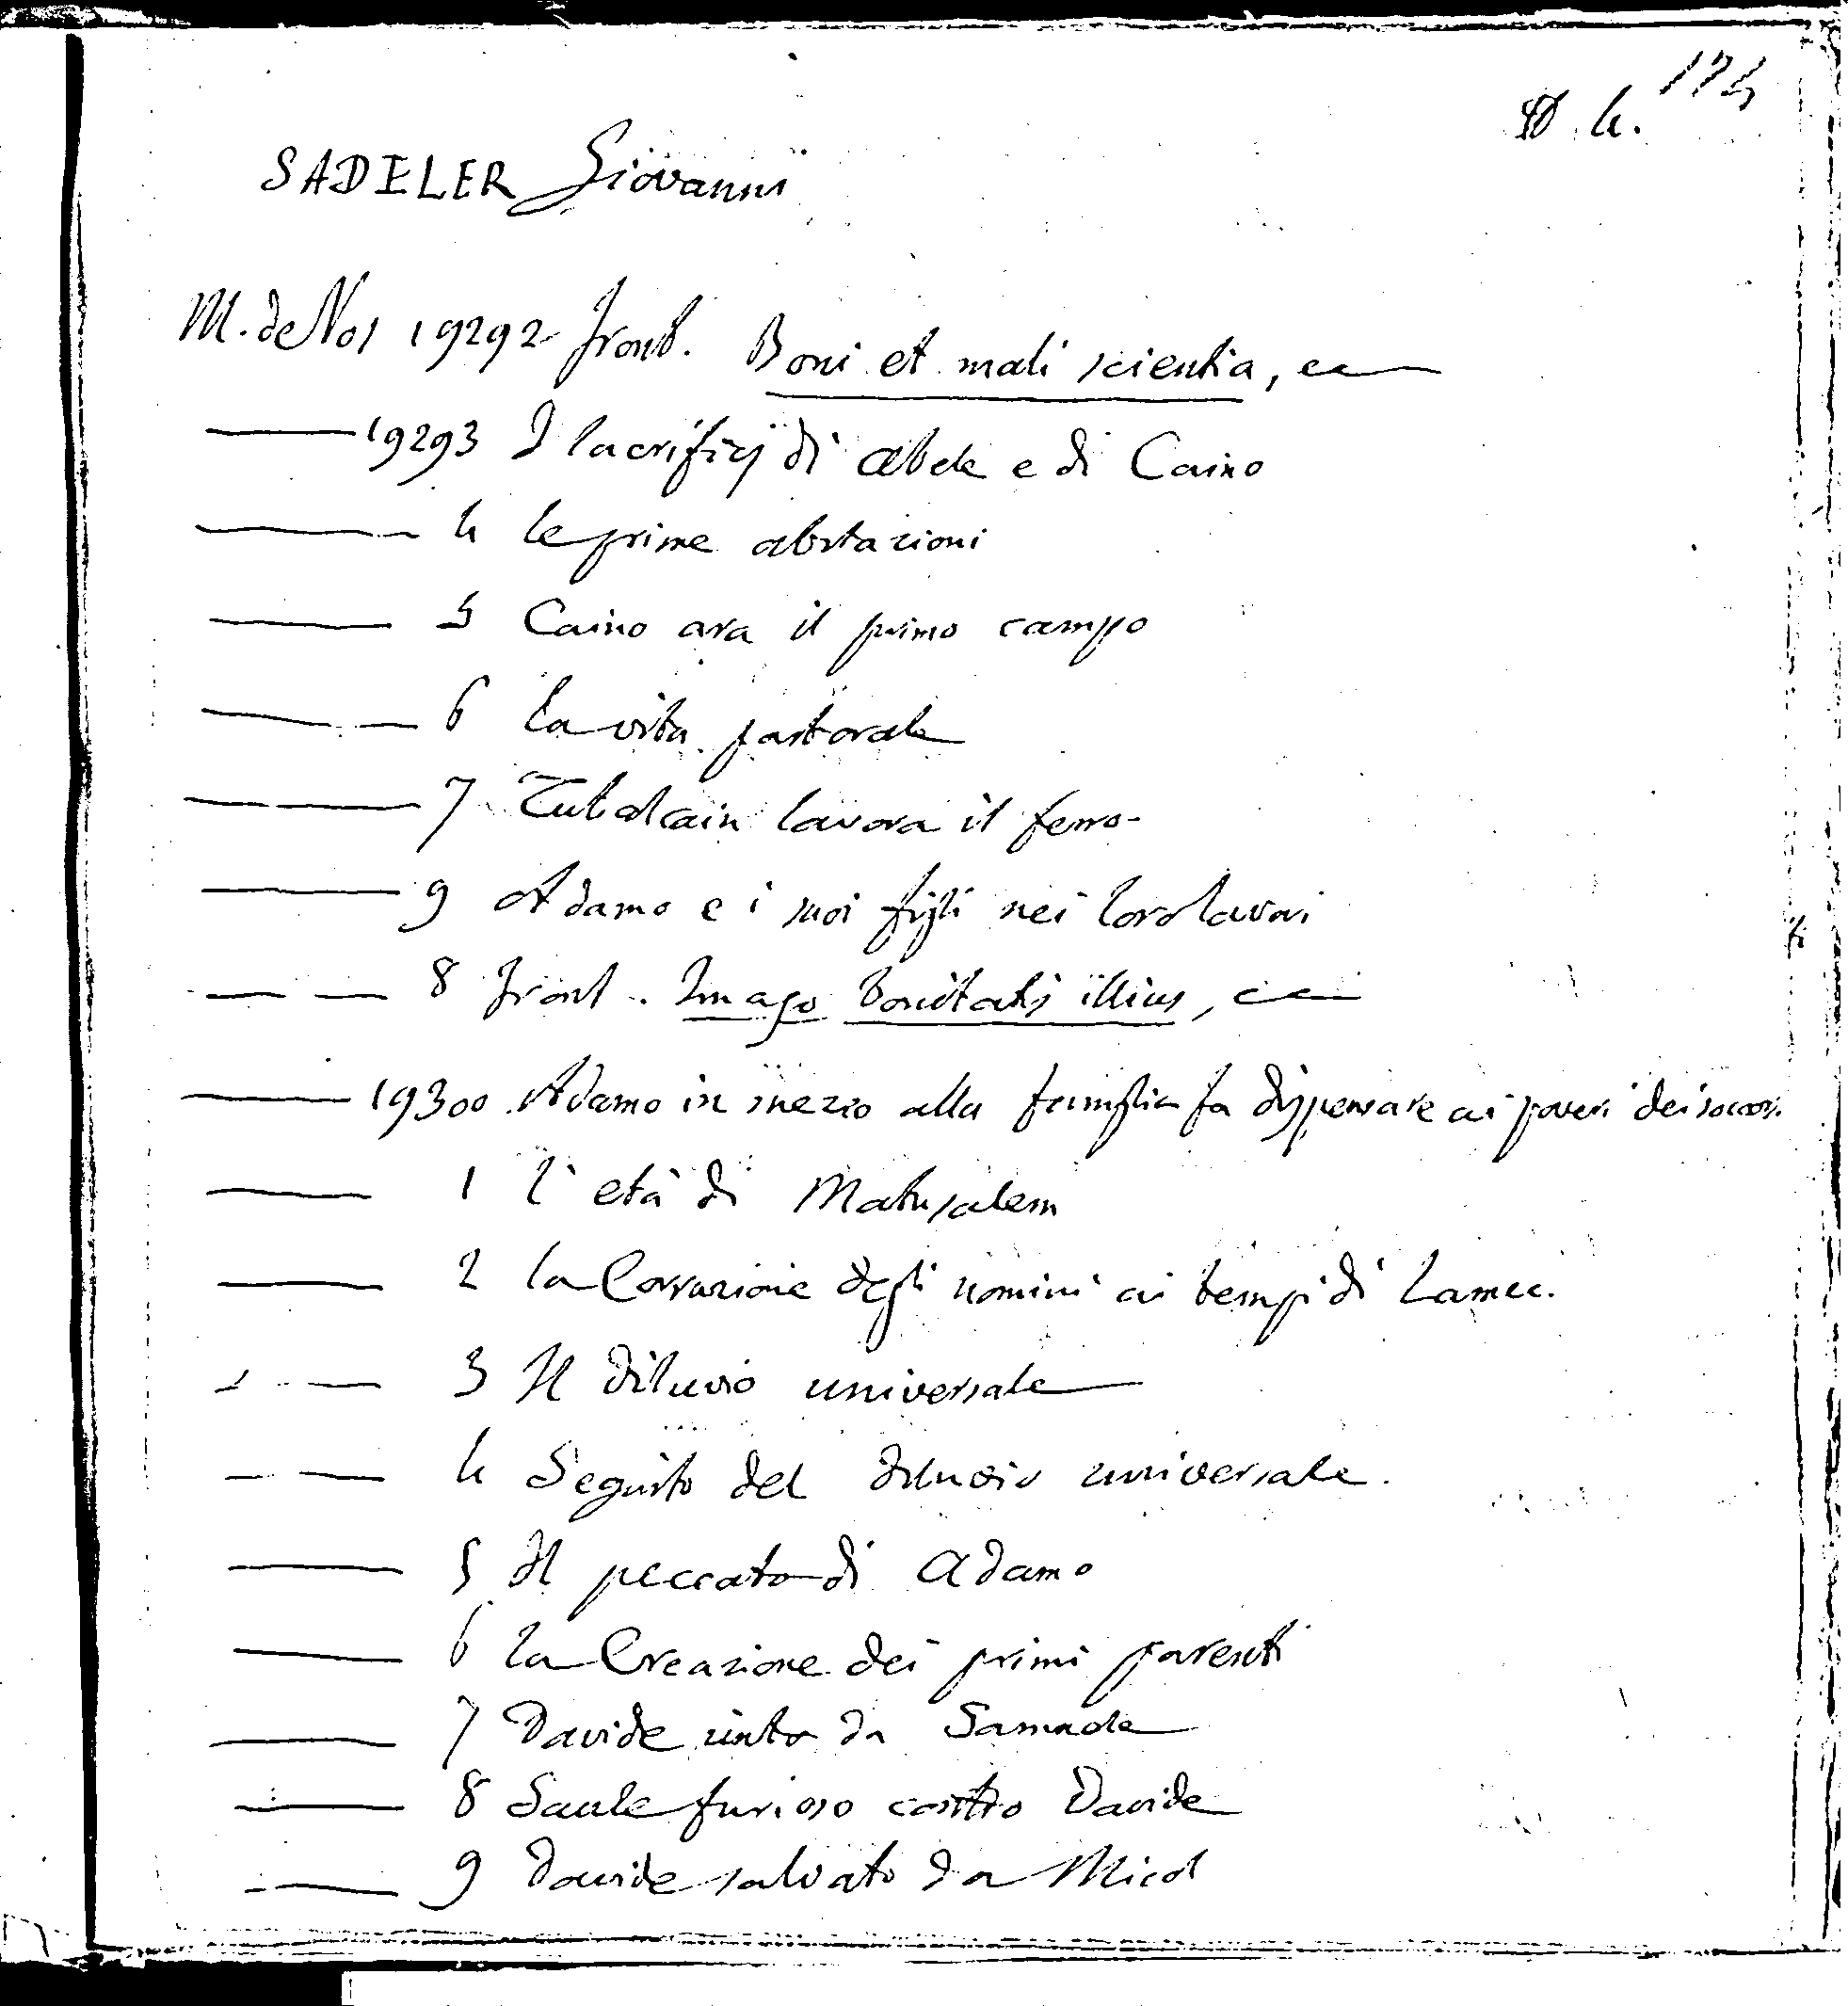 174
4.
SADELER Giovanni
M. de Vos 19292 front. Boni et mali scientia, ecc
19293 I sacrifizj di Abele e di Caino
4 le prime abitazioni
5 Caino ara il primo campo
6 La vita pastorale
7 Tubalcain lavora il ferro
9 Adamo e i suoi figli nei loro lavori
8 front. Imago bonitatis illius, ecc
19300 Adamo in mezzo alla famiglia fa dispensare ai poveri dei soccorsi
1 l'età di Matusalem
2 la Corruzione degli uomini ai tempi di Lamec.
3 Il diluvio universale
4 Seguito del diluvio universale.
5 Il peccato di Adamo
6 La Creazione dei primi parenti
7 Davide unto da Samuele
8 Saule furioso contro Davide
9 Davide salvato da Micol